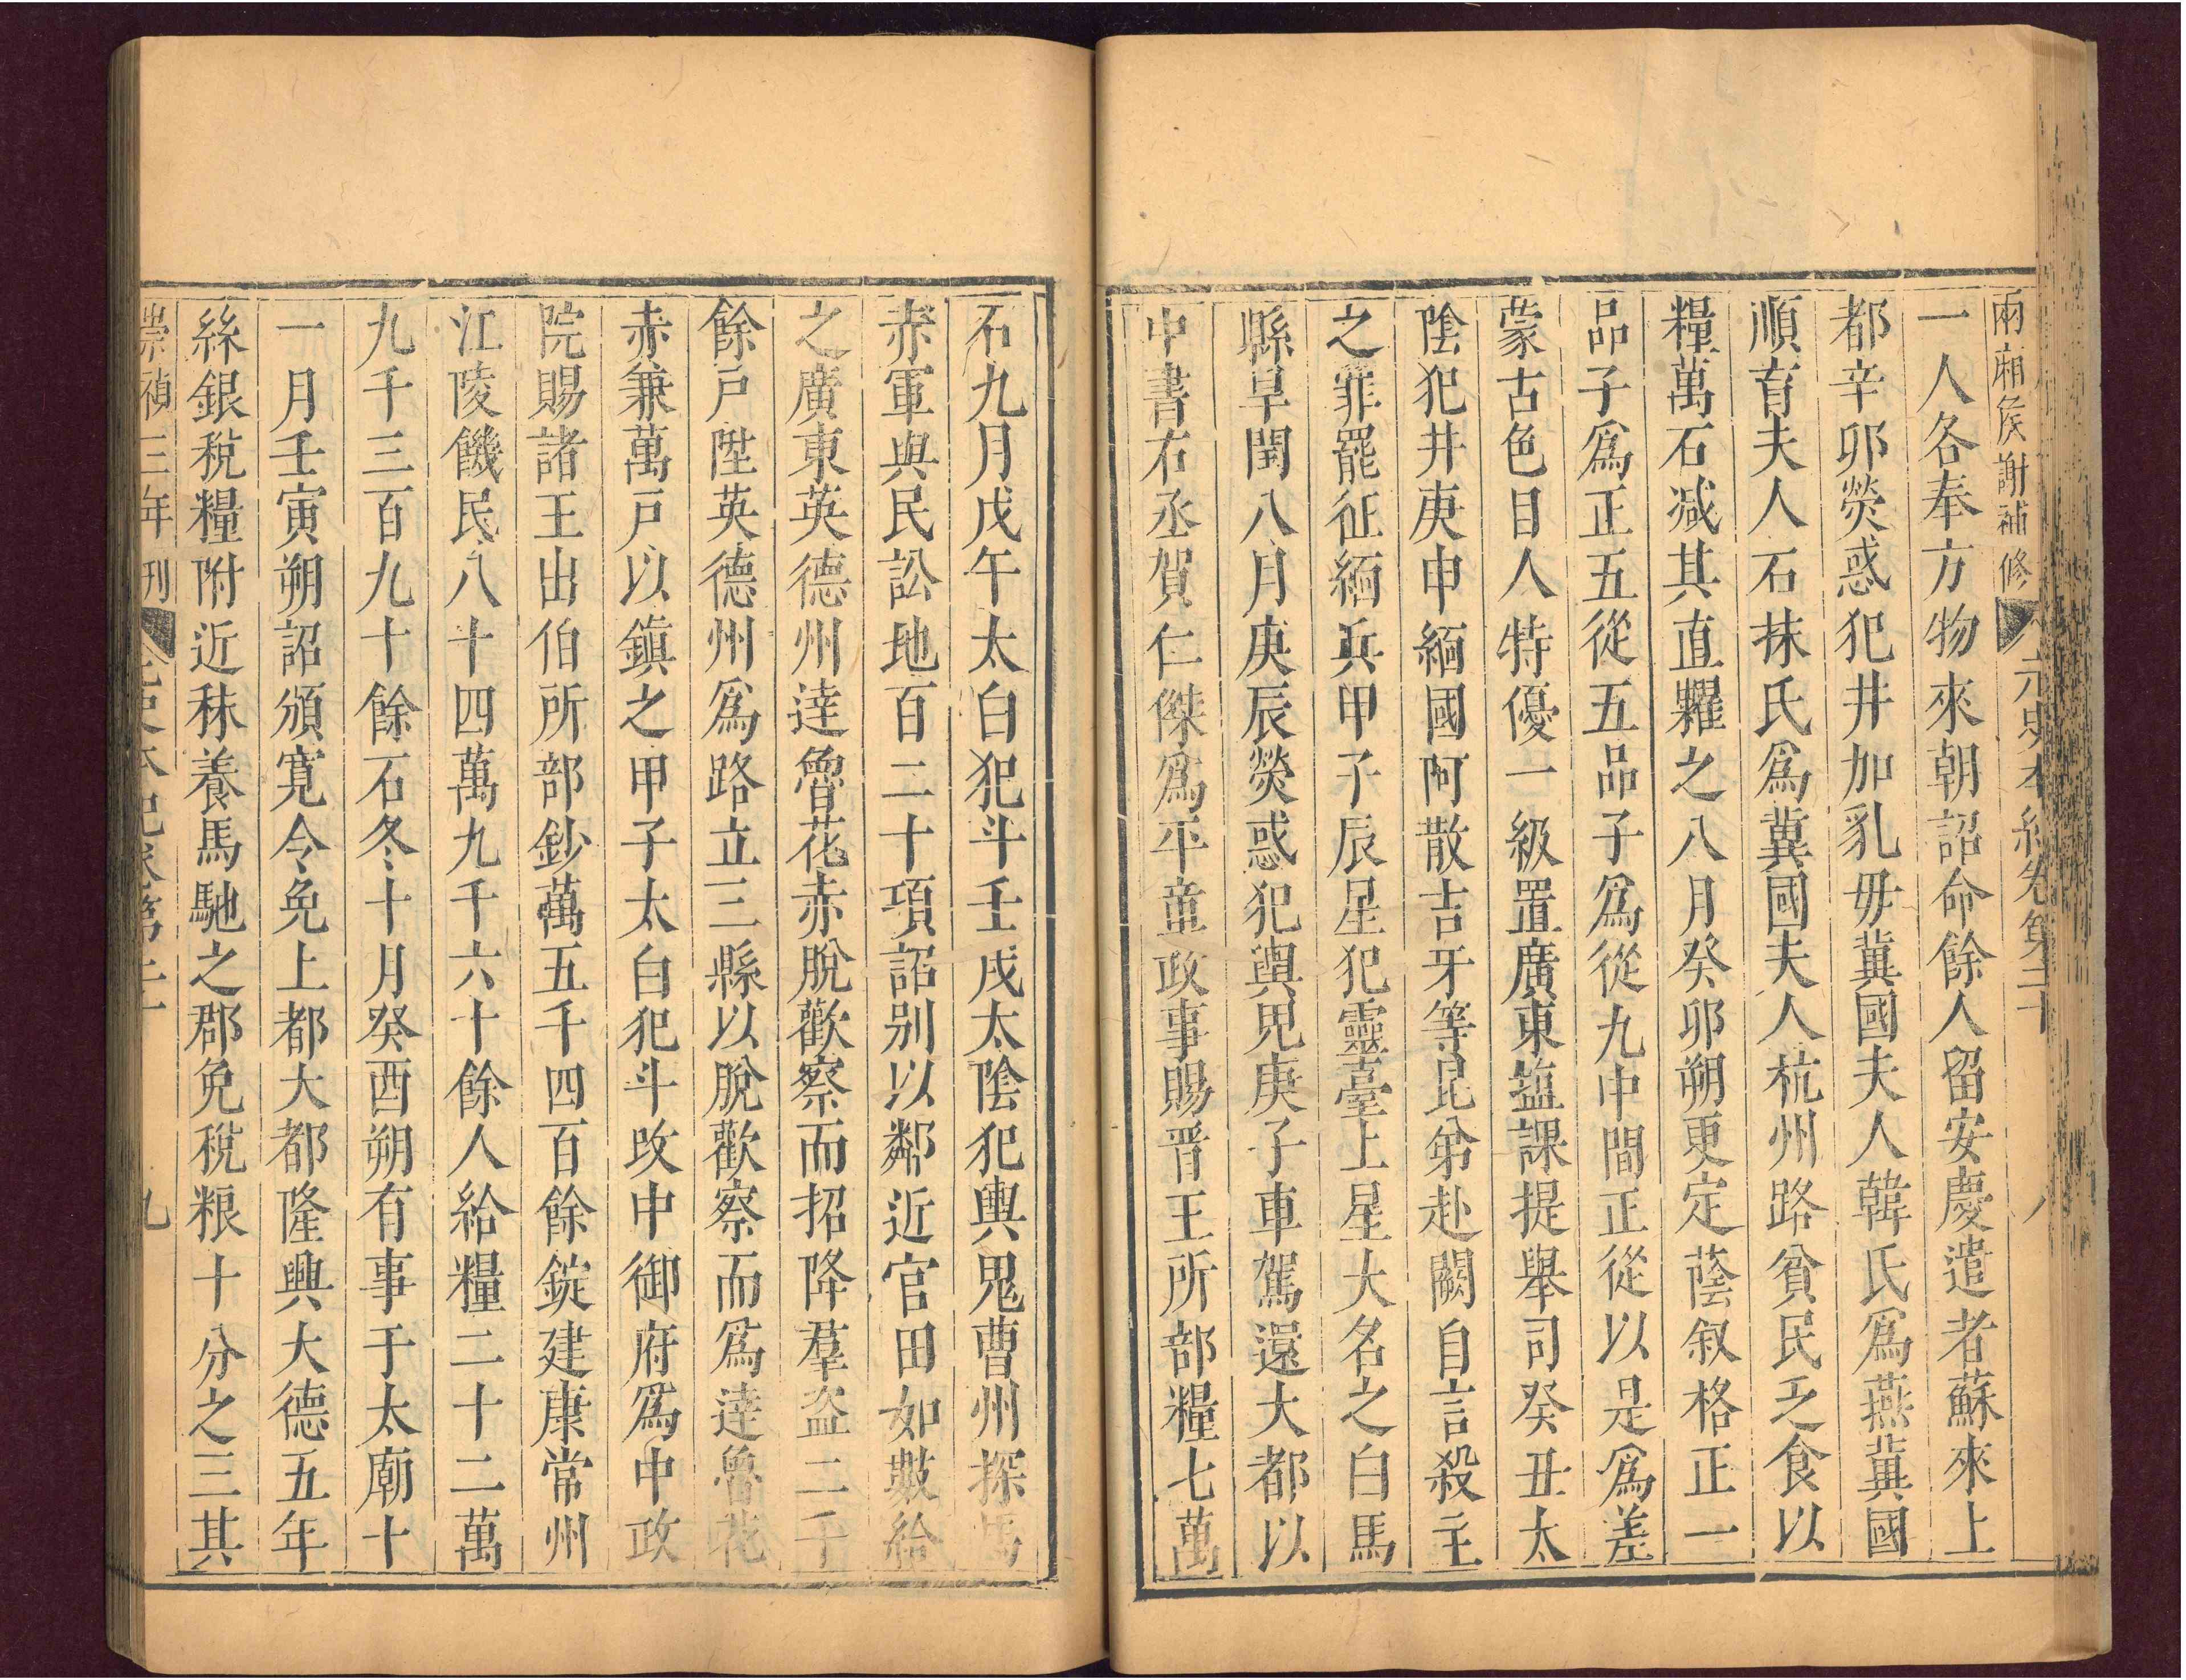 兩廂侯謝補修 元史本紀卷第二十 八
一人各奉方物來朝詔命餘人留安慶遣者蘇來上
都辛卯熒惑犯井加乳毋冀國夫人韓氏爲燕冀國
順育夫人石抹氏爲冀國夫人杭州路貧民乏食以
糧萬石减其直糶之八月癸卯朔更定蔭叙格正一
品子爲正五從五品子爲從九中間正從以是爲差
蒙古色目人特優一級置廣東鹽課提舉司癸丑太
陰犯井庚申緬國阿散吉牙等昆弟赴闕自言殺主
之罪罷征緬兵甲子辰星犯靈臺上星大名之白馬
縣旱閏八月庚辰熒惑犯輿鬼庚子車駕還大都以
中書右丞賀仁傑爲平章政事賜晉王所部糧七萬
石九月戊午太白犯斗壬戌太陰犯輿鬼曹州探馬
赤軍與民訟地百二十項詔别以鄰近官田如數給
之廣東英德州達魯花赤脫歡察而招降羣盗二千
餘戸陞英德州爲路立三縣以脫歡察而爲達魯花
赤兼萬戸以鎮之甲子太白犯斗改中御府爲中政
院賜諸王出伯所部鈔萬五千四百餘錠建康常州
江陵饑民八十四萬九千六十餘人給糧二十二萬
九千三百九十餘石冬十月癸酉朔有事于太廟十
一月壬寅朔詔頒寬令免上都大都隆興大德五年
絲銀稅糧附近秣養馬馳之郡免稅粮十分之三其
崇禎三年刊 元史本紀卷第二十 九